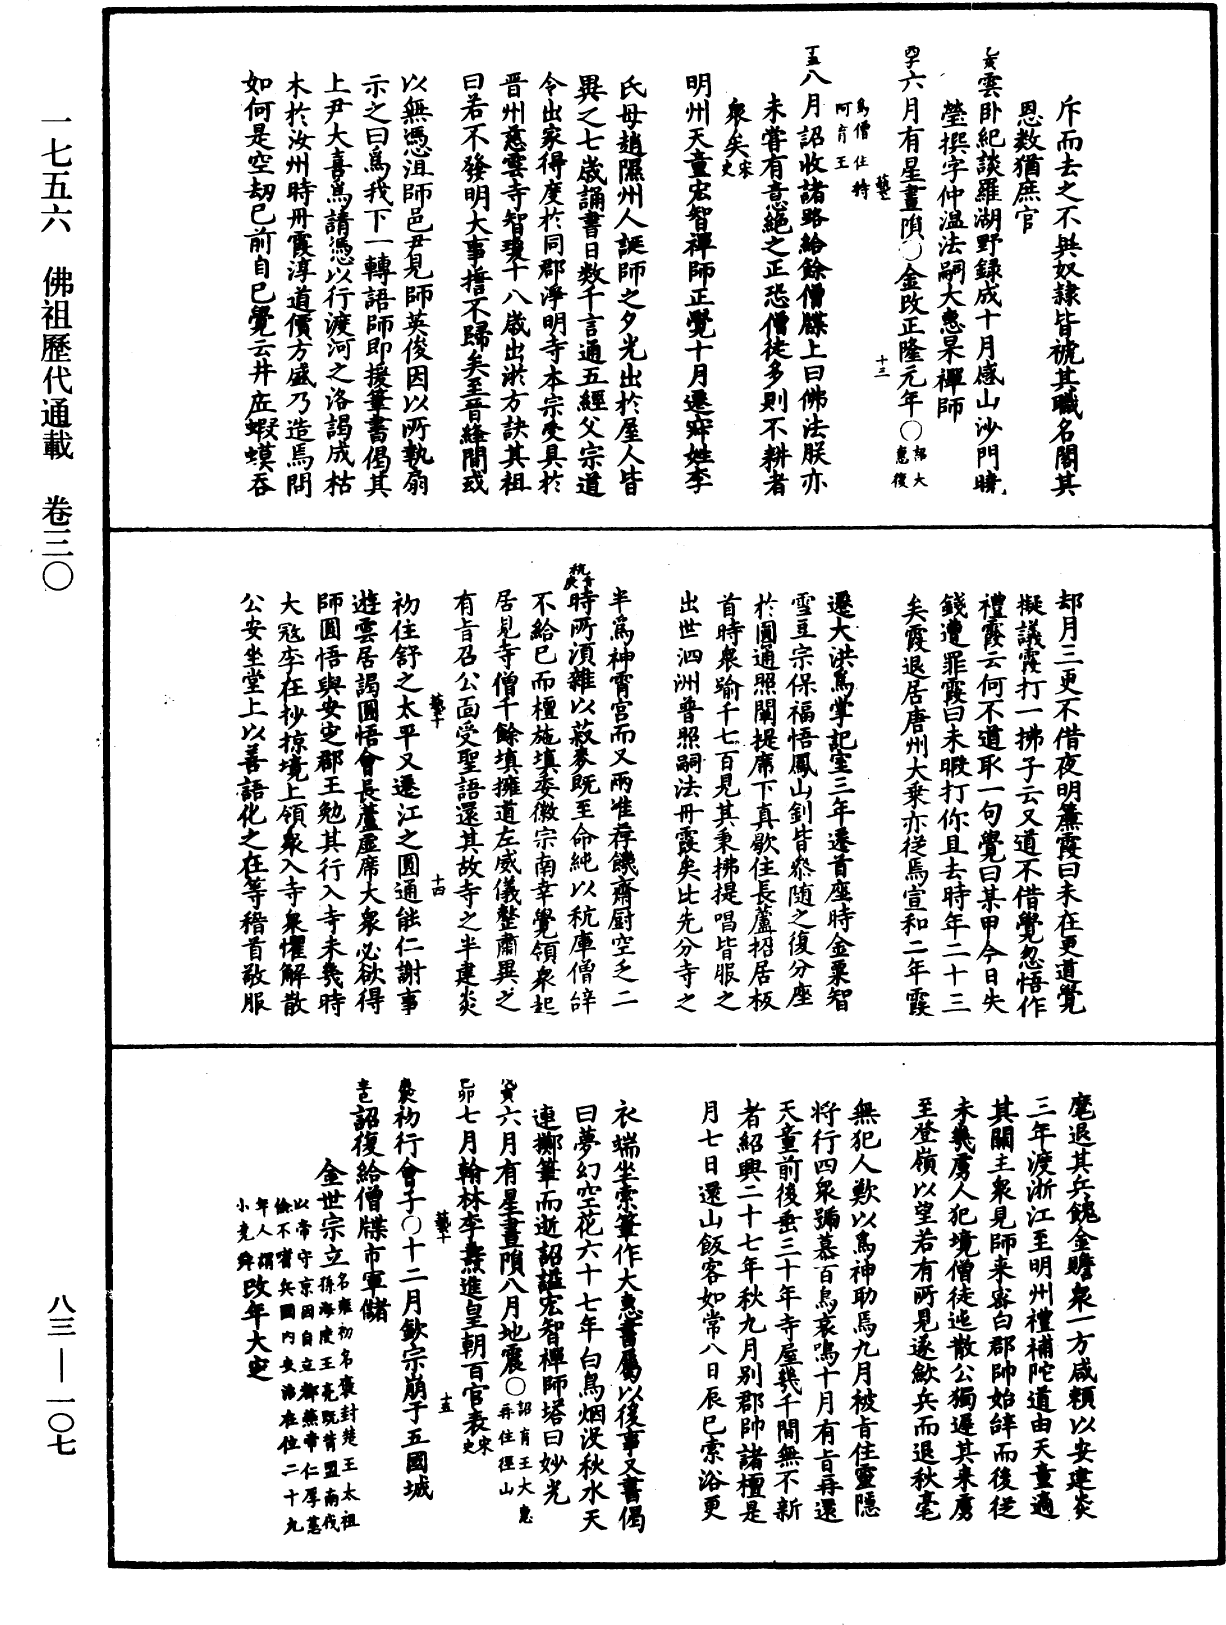 一七五六　佛祖歷代通載　卷三〇
斥而去之不與奴隸皆褫其職名閣其
恩数猶庶官
乙亥雲卧紀談羅湖野録成十月感山沙門曉
瑩撰字仲温法嗣大惠杲禪師
六月有星晝隕〇金改正隆元年〇詔大惠復
爲僧住持阿育王
丁丑八月詔收諸路給餘僧牒上曰佛法朕亦
未嘗有意絶之正恐僧徒多則不耕者
衆矣宋史
明州天童宏智禪師正覺十月遷寂姓李
氏母趙隰州人誕師之夕光出於屋人皆
異之七歲誦書日数千言通五經父宗道
令出家得度於同郡淨明寺本宗受具於
晉州慈雲寺智瓊十八歲出游方訣其祖
曰若不發明大事誓不歸矣至晉絳間或
以無憑沮師邑尹見師英俊因以所執扇
示之曰爲我下一轉語師即援筆書偈其
上尹大喜爲請憑以行渡河之洛謁成枯
木於汝州時丹霞淳道價方盛乃造焉問
如何是空劫巳前自巳覺云井底蝦蟆吞
却月三更不借夜明簾霞曰未在更道覺
擬議霞打一拂子云又道不借覺忽悟作
禮霞云何不道取一句覺曰某甲今日失
錢遭罪霞曰未暇打你且去時年二十三
矣霞退居唐州大乗亦從焉宣和二年霞
遷大洪爲掌記室三年遷首座時金粟智
雪豆宗保福悟鳳山釗皆叅隨之復分座
於圓通照闡提席下真歇住長蘆招居板
首時衆踰千七百見其秉拂提唱皆服之
出世泗洲普照嗣法丹霞矣比先分寺之
半爲神霄宮而又兩淮荐饑齋厨空乏二
時所湏雜以菽麥既至命純以秔庫僧辝
不給巳而檀施填委徽宗南幸覺領衆起
居見寺僧千餘填擁道左威儀整肅異之
有旨召公面受聖語還其故寺之半建炎
初住舒之太平又遷江之圓通能仁謝事
遊雲居謁圓悟會長蘆虛席大衆必欲得
師圓悟與安定郡王勉其行入寺未幾時
大寇李在抄掠境上領衆入寺衆懼解散
公安坐堂上以善語化之在等稽首敬服
麾退其兵餽金贍衆一方咸頼以安建炎
三年渡浙江至明州禮補陀道由天童適
其闕主衆見師来密白郡帥始辝而後從
未幾虜人犯境僧徒迯散公獨遲其来虜
至登嶺以望若有所見遂歛兵而退秋毫
無犯人歎以爲神助焉九月被旨住靈隱
将行四衆踊慕百鳥哀鳴十月有旨再還
天童前後垂三十年寺屋幾千間無不新
者紹興二十七年秋九月别郡帥諸檀是
月七日還山飯客如常八日辰巳索浴更
衣端坐索筆作大惠書属以後事又書偈
曰夢幻空花六十七年白鳥烟没秋水天
連擲筆而逝詔謚宏智禪師塔曰妙光
戊寅六月有星晝隕八月地震〇詔育王大惠再住徑山
己卯七月翰林李燾進皇朝百官表宋史
初行會子〇十二月欽宗崩于五國城
辛巳詔復給僧牒市軍儲
金世宗立名雍初名褒封楚王太祖孫海陵王亮既背盟南伐以帝守京因自立都燕帝仁厚慈儉不嗜兵國内安治在位二十九年人謂小堯舜改年大定
八三—一〇七